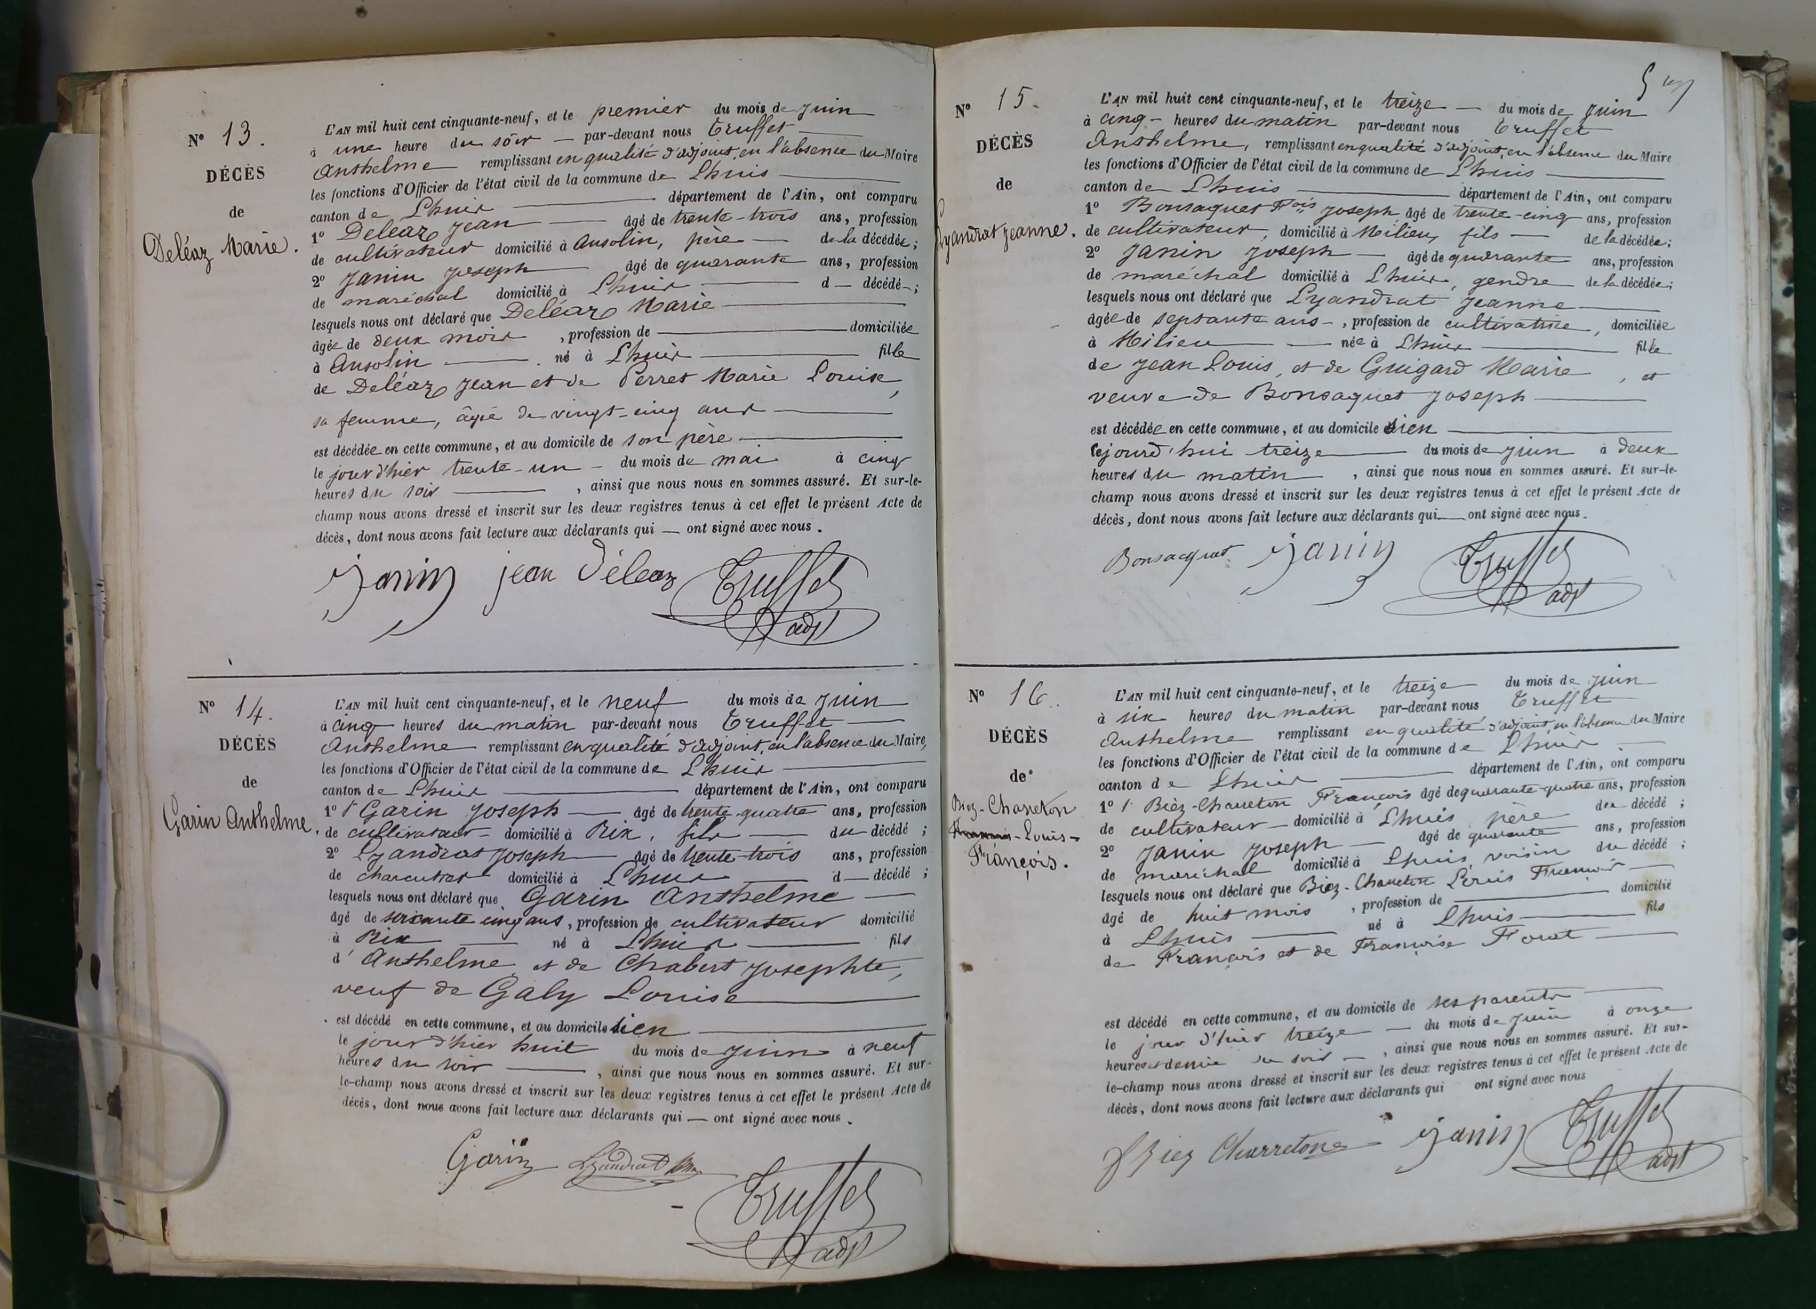 N° 13.
DÉCÈS
de
Deléaz Marie.
L'AN mil huit cent cinquante-neuf, et le premier du mois de juin
à une heure du soir — par-devant nous Truffet
Anthelme remplissant en qualité d'adjoint, en l'absence du Maire
les fonctions d'Officier de l'état civil de la commune de Lhuis
canton de Lhuis département de l'Ain, ont comparu
1° Deléaz Jean âgé de trente-trois ans, profession
de cultivateur domicilié à Ansolin, père — de la décédée;
2° Janin Joseph âgé de quarante ans, profession
de maréchal domicilié à Lhuis d — décédé—;
lesquels nous ont déclaré que Deléaz Marie
âgée de deux mois, profession de domiciliée
à Ansolin né à Lhuis fille
de Deléaz Jean et de Perret Marie Louise,
sa femme, âgée de vingt-cinq ans
est décédée en cette commune, et au domicile de son père
le jour d'hier trente-un — du mois de mai à cinq
heures du soir , ainsi que nous nous en sommes assuré. Et sur-le-
champ nous avons dressé et inscrit sur les deux registres tenus à cet effet le présent Acte de
décès, dont nous avons fait lecture aux déclarants qui — ont signé avec nous.
Janin Jean Déléaz Truffet
adjt
N° 14.
DÉCÈS
de
Garin Anthelme.
L'AN mil huit cent cinquante-neuf, et le neuf du mois de juin
à cinq heures du matin par-devant nous Truffet
Anthelme remplissant en qualité d'adjoint, en l'absence du Maire,
les fonctions d'Officier de l'état civil de la commune de Lhuis
canton de Lhuis département de l'Ain, ont comparu
1° Garin Joseph — âgé de trente-quatre ans, profession
de cultivateur — domicilié à Rix, fils — du décédé;
2° Lyandrat Joseph âgé de trente-trois ans, profession
de charcutier domicilié à Lhuis d — décédé;
lesquels nous ont déclaré que Garin Anthelme
âgé de soixante cinq ans, profession de cultivateur domicilié
à Rix né à Lhuis fils
d'Anthelme et de Chabert Josephte,
veuf de Galy Louise
est décédé en cette commune, et au domicile sien
le jour d'hier huit du mois de juin à neuf
heures du soir , ainsi que nous nous en sommes assuré. Et sur-
le-champ nous avons dressé et inscrit sur les deux registres tenus à cet effet le présent Acte de
décès, dont nous avons fait lecture aux déclarants qui — ont signé avec nous.
Garin Lyandrat Truffet
adjt
5
N° 15.
DÉCÈS
de
Lyandrat Jeanne.
L'AN mil huit cent cinquante-neuf, et le treize — du mois de juin
à cinq — heures du matin par-devant nous Truffet
Anthelme, remplissant en qualité d'adjoint, en l'absence du Maire
les fonctions d'Officier de l'état civil de la commune de Lhuis
canton de Lhuis département de l'Ain, ont comparu
1° Bonsaquet Fois Joseph âgé de trente-cinq ans, profession
de cultivateur, domicilié à Milieu, fils — de la décédée;
2° Janin Joseph — âgé de quarante ans, profession
de maréchal domicilié à Lhuis, gendre de la décédée;
lesquels nous ont déclaré que Lyandrat Jeanne
âgée de septante ans —, profession de cultivatrice, domiciliée
à Milieu née à Lhuis fille
de Jean Louis, et de Guigard Marie, et
veuve de Bonsaquet Joseph
est décédée en cette commune, et au domicile sien
cejourd'hui treize du mois de juin à deux
heures du matin , ainsi que nous nous en sommes assuré. Et sur-le-
champ nous avons dressé et inscrit sur les deux registres tenus à cet effet le présent Acte de
décès, dont nous avons fait lecture aux déclarants qui — ont signé avec nous.
Bonsacquet Janin Truffet
adjt
N° 16.
DÉCÈS
de
Biez-Charreton
Louis-
François.
L'AN mil huit cent cinquante-neuf, et le treize du mois de juin
à six heures du matin par-devant nous Truffet
Anthelme remplissant en qualité d'adjoint, en l'absence du Maire
les fonctions d'Officier de l'état civil de la commune de Lhuis
canton de Lhuis département de l'Ain, ont comparu
1° Biez-Charreton François âgé de quarante-quatre ans, profession
de cultivateur — domicilié à Lhuis, père du décédé;
2° Janin Joseph — âgé de quarante ans, profession
de maréchal domicilié à Lhuis, voisin du décédé;
lesquels nous ont déclaré que Biez-Charreton Louis François
âgé de huit mois, profession de domicilié
à Lhuis né à Lhuis fils
de François et de Françoise Forat
est décédé en cette commune, et au domicile de ses parents
le jour d'hier treize — du mois de juin à onze
heures et demie du soir —, ainsi que nous nous en sommes assuré. Et sur-
le-champ nous avons dressé et inscrit sur les deux registres tenus à cet effet le présent Acte de
décès, dont nous avons fait lecture aux déclarants qui ont signé avec nous
Biez Charretone Janin Truffet
adjt